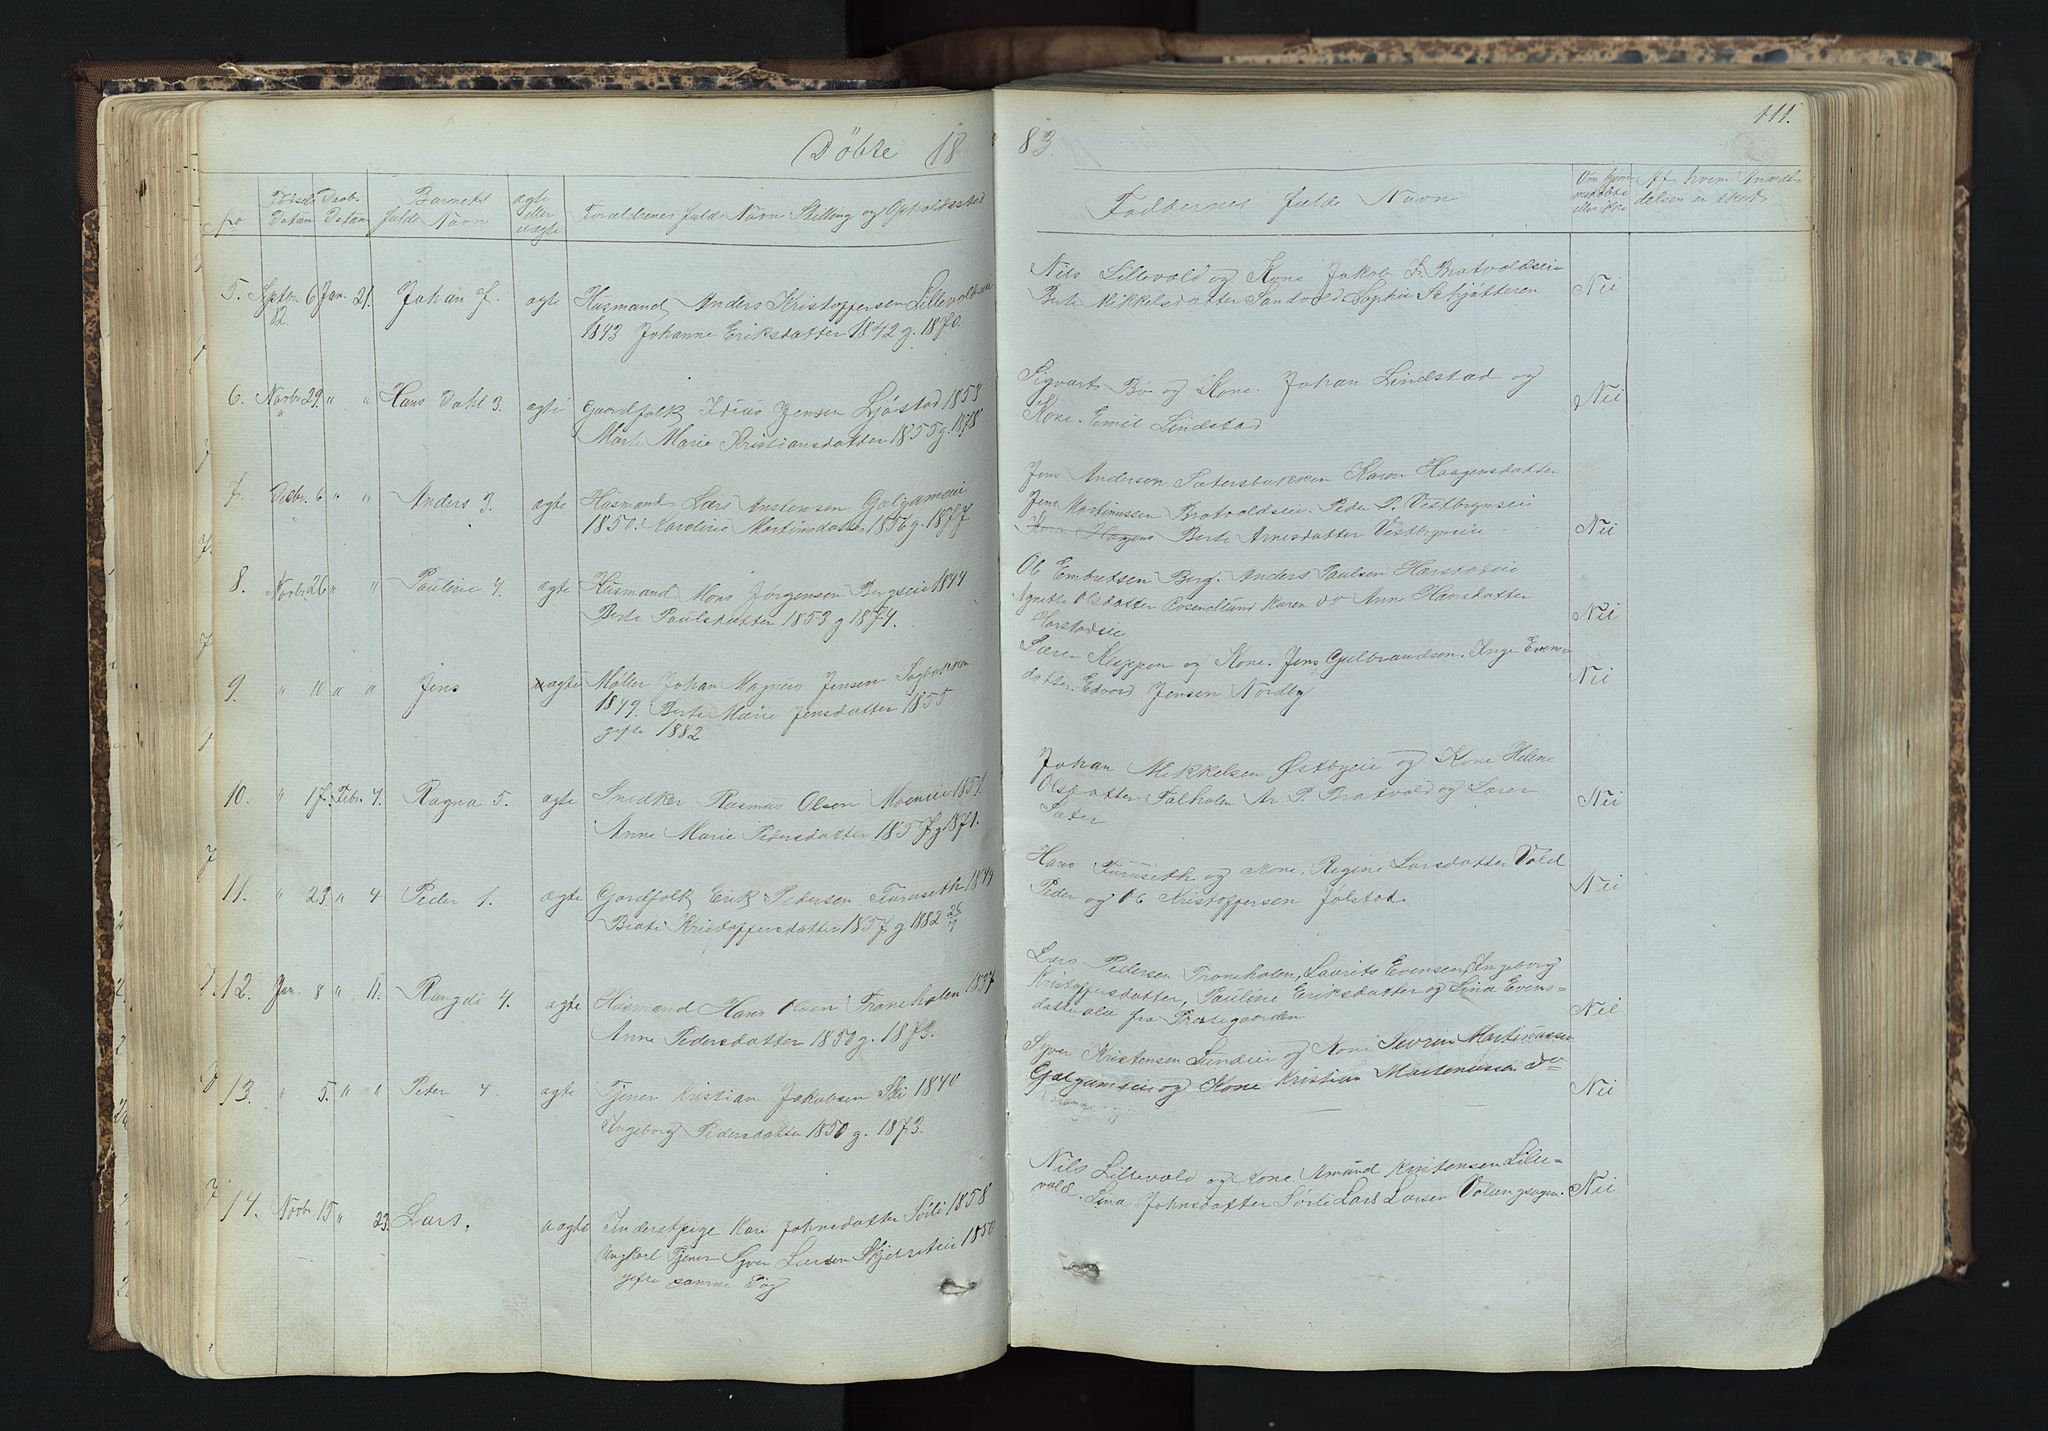 Döbte 18
83.
111.
No
Fødsels Datum
Daabs Datum
Barnets fulde Navn
ægte eller uægte
Foraldrenes fulde Navn Stilling og Opholdssted
Faddernes fulde Navn
Om hjemmedøbt eller ikke
Af hvem Indvidelsen er skeet
5. Septbr. 6 Jan. 21. Johan 7. ægte Husmand Anders Kristoffersen Lillevoldseie
12. 1843 Johanne Eriksdatter 1842 g. 1870.
Nils Lillevold og Kone Jakob Bratvoldseie
Berte Mikkelsdatter Sandvold Sophie Nei
6. Novbr 29. " " Hans Dahl 3. ægte Gaardfolk Jensen Ljøstad 1853
Marte Marie Kristiansdatter 1855 g. 1878.
Sigvart Bø og Kone. Johan Lindstad og
Kone. Emil Lindstad Nei
7. Desbr. 6 " " Anders 3. ægte Husmand Lars Anstensen Galgumseie
1850. Karoline Martinsdatter 1856 g. 1877
Jens Andersen Sætersbakken Karen Haagensdatter
Jens Martinussen Bratvoldseie. Peder P. Vestbyenseie
Haagens Berte Arnesdatter Vestbyeneie Nei
8. Novbr 26 " " Pauline 4. ægte Husmand Mons Jørgensen Bergseie 1844
Berte Paulsdatter 1853 g 1874.
Ole Embretsen Berg. Anders Paulsen Harstadeie
Agnethe Olsdatter Rosenlund Karen do Anne Hansdatter
Harstadeie Nei
9. " 10 " " Jens uægte Møller Johan Magnus Jensen Sagbakken
1849. Berte Marie Jensdatter 1855
gifte 1882
Søren Kleppen og Kone. Jens Gulbrandsen. Inge Evens-
datter. Edvard Jensen Nordby Nei
10. " 17. Febr. 4. Ragna 5. ægte Snedker Rasmus Olsen Moeneie 1851.
Anne Marie Pedersdatter 1857 g 1871.
Johan Mikkelsen Østbyeie og Kone Helene
Olsdatter Falholen Ar. P. Bratvold og Søren
Sæter Nei
11. " 23. " 4 Peder 1. ægte Gaardfolk Erik Pedersen Furuseth 1849
Beate Kristoffersdatter 1857 g 1882
Hans Furuseth og Kone, Regine Larsdatter Vold
Peder og Ole Kristoffersen Jølstad. Nei
12. Jan. 8 " 11. Rangdi 4. ægte Husmand Hans Olsen Traneholen 1847
Anne Pedersdatter 1850 g. 1873.
Lars Pedersen Traneholen, Laurits Evensen, Ingeborg
Kristoffersdatter, Pauline Eriksdatter og Lina Evens-
datter alle fra Prestegaarden Nei
13. " 5. " " Peter 4. ægte Tjener Kristian Jakobsen Ski 1840
Ingeborg Pedersdatter 1850 g. 1873.
Syver Kristensen Sundeie og Kone Severin Martinussen
Galgumseie og Kone Kristian Martinusen do Nei
14. Novbr 15 " 23. Lars. uægte Inderstpige Kari Johnsdatter Sörli 1858
Ungkarl Tjener Syver Larsen Skjelseteie 1850
gifte samme Dag
Nils Lillevold og Kone Amund Kristensen Lille-
vold. Lina Johnsdatter Sørli Lars Larsen Volangsagen. Nei